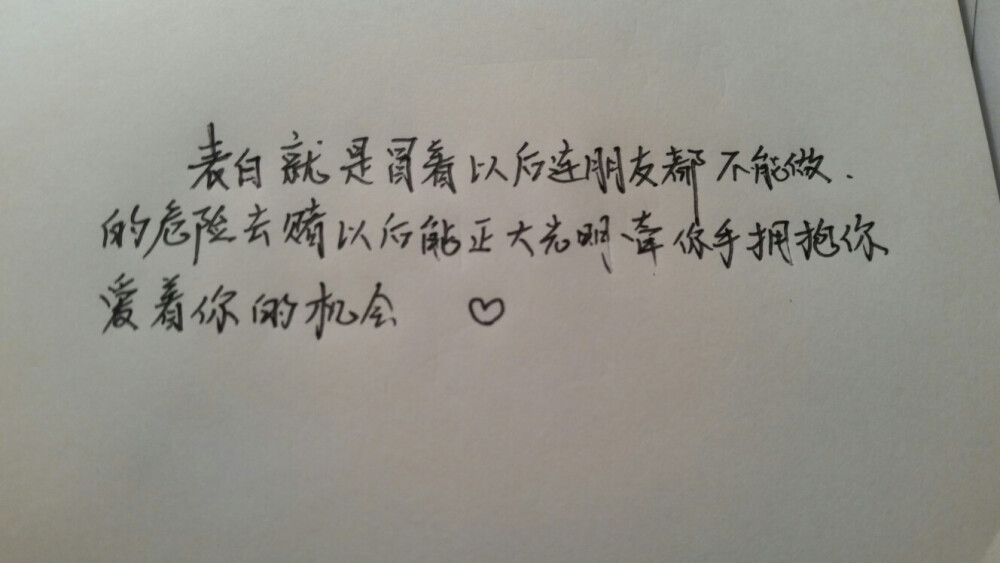 表白就是冒着以后连朋友都不能做.
的危险去赌以后能正大光明牵你手拥抱你
爱着你的机会 ♡